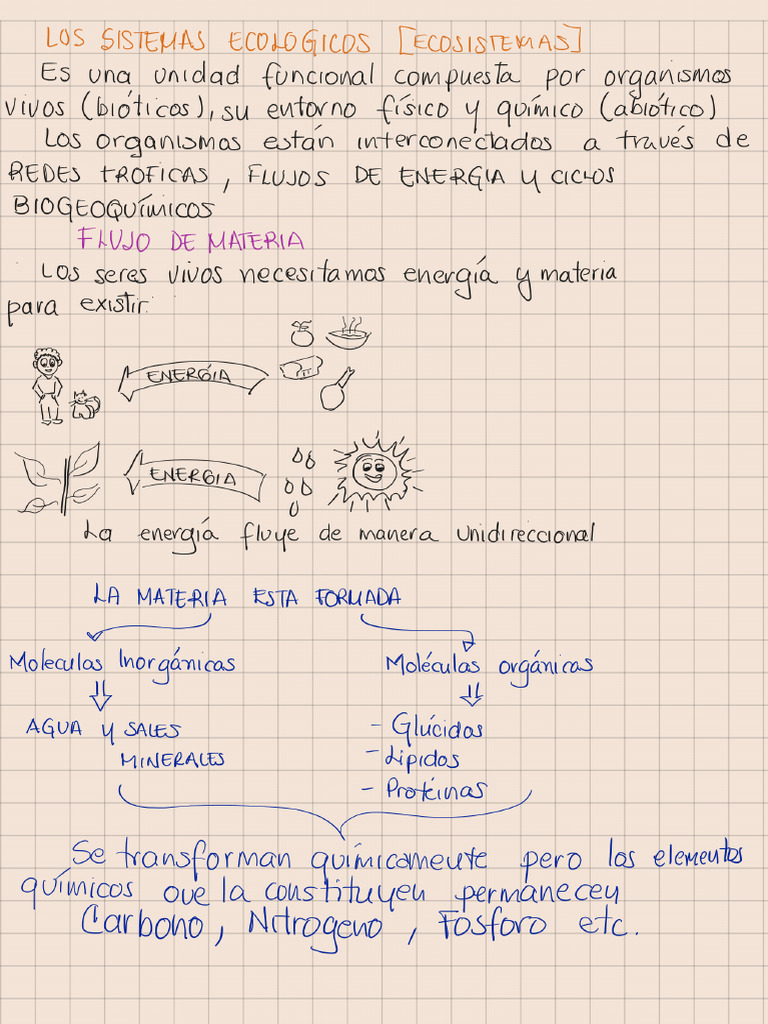 LOS SISTEMAS ECOLOGICOS [ECOSISTEMAS]
Es una unidad funcional compuesta por organismos
vivos (bióticos), su entorno físico y químico (abiótico)
Los organismos están interconectados a través de
REDES TROFICAS, FLUJOS DE ENERGIA Y CICLOS
BIOGEOQUÍMICOS
FLUJO DE MATERIA
Los seres vivos necesitamos energía y materia
para existir.
ENERGÍA
ENERGIA
La energía fluye de manera Unidireccional
LA MATERIA ESTA FORMADA
Moleculas Inorgánicas
Moléculas orgánicas
AGUA Y SALES
MINERALES
- Glúcidos
- Lípidos
- Protéinas
Se transforman químicamente pero los elementos
químicos que la constituyen permanecen
Carbono, Nitrogeno, Fósforo etc.